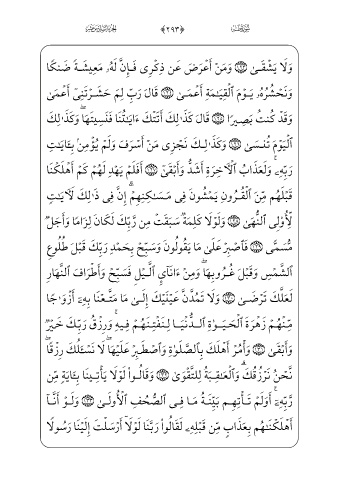 ﴿٢٩٣﴾
وَلَا يَشْقَىٰ ۝١٢٣ وَمَنْ أَعْرَضَ عَن ذِكْرِى فَإِنَّ لَهُۥ مَعِيشَةً ضَنكًا
وَنَحْشُرُهُۥ يَوْمَ ٱلْقِيَٰمَةِ أَعْمَىٰ ۝١٢٤ قَالَ رَبِّ لِمَ حَشَرْتَنِىٓ أَعْمَىٰ
وَقَدْ كُنتُ بَصِيرًا ۝١٢٥ قَالَ كَذَٰلِكَ أَتَتْكَ ءَايَٰتُنَا فَنَسِيتَهَا ۖ وَكَذَٰلِكَ
ٱلْيَوْمَ تُنسَىٰ ۝١٢٦ وَكَذَٰلِكَ نَجْزِى مَنْ أَسْرَفَ وَلَمْ يُؤْمِنۢ بِـَٔايَٰتِ
رَبِّهِۦ ۚ وَلَعَذَابُ ٱلْءَاخِرَةِ أَشَدُّ وَأَبْقَىٰٓ ۝١٢٧ أَفَلَمْ يَهْدِ لَهُمْ كَمْ أَهْلَكْنَا
قَبْلَهُم مِّنَ ٱلْقُرُونِ يَمْشُونَ فِى مَسَٰكِنِهِمْ ۗ إِنَّ فِى ذَٰلِكَ لَءَايَٰتٍ
لِّأُو۟لِى ٱلنُّهَىٰ ۝١٢٨ وَلَوْلَا كَلِمَةٌ سَبَقَتْ مِن رَّبِّكَ لَكَانَ لِزَامًا وَأَجَلٌ
مُّسَمًّى ۝١٢٩ فَٱصْبِرْ عَلَىٰ مَا يَقُولُونَ وَسَبِّحْ بِحَمْدِ رَبِّكَ قَبْلَ طُلُوعِ
ٱلشَّمْسِ وَقَبْلَ غُرُوبِهَا ۖ وَمِنْ ءَانَآئِ ٱلَّيْلِ فَسَبِّحْ وَأَطْرَافَ ٱلنَّهَارِ
لَعَلَّكَ تَرْضَىٰ ۝١٣٠ وَلَا تَمُدَّنَّ عَيْنَيْكَ إِلَىٰ مَا مَتَّعْنَا بِهِۦٓ أَزْوَٰجًا
مِّنْهُمْ زَهْرَةَ ٱلْحَيَوٰةِ ٱلدُّنْيَا لِنَفْتِنَهُمْ فِيهِ ۚ وَرِزْقُ رَبِّكَ خَيْرٌ
وَأَبْقَىٰ ۝١٣١ وَأْمُرْ أَهْلَكَ بِٱلصَّلَوٰةِ وَٱصْطَبِرْ عَلَيْهَا ۖ لَا نَسْـَٔلُكَ رِزْقًا ۖ
نَّحْنُ نَرْزُقُكَ ۗ وَٱلْعَٰقِبَةُ لِلتَّقْوَىٰ ۝١٣٢ وَقَالُوا۟ لَوْلَا يَأْتِينَا بِـَٔايَةٍ مِّن
رَّبِّهِۦٓ ۚ أَوَلَمْ تَأْتِهِم بَيِّنَةُ مَا فِى ٱلصُّحُفِ ٱلْأُولَىٰ ۝١٣٣ وَلَوْ أَنَّآ
أَهْلَكْنَٰهُم بِعَذَابٍ مِّن قَبْلِهِۦ لَقَالُوا۟ رَبَّنَا لَوْلَآ أَرْسَلْتَ إِلَيْنَا رَسُولًا